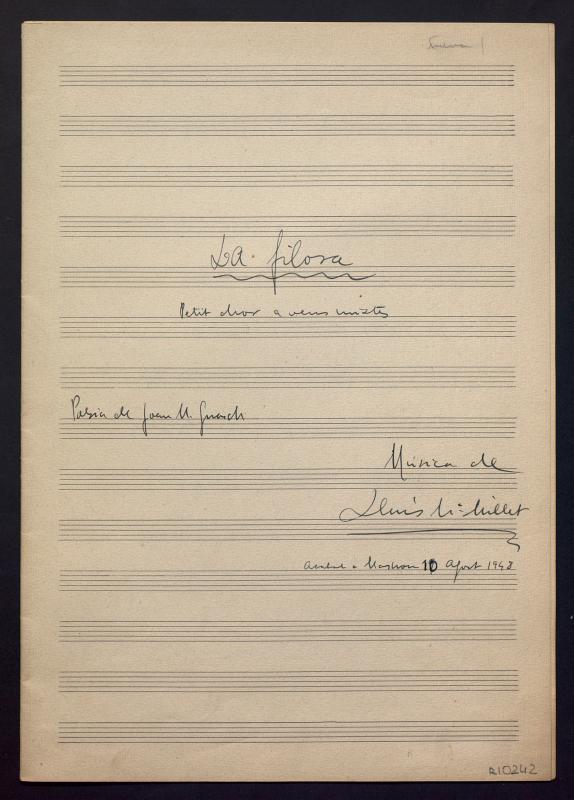 La filosa
Petit chor a veus mixtes
Poesia de Joan M. Guasch
Música de
Lluís Mª Millet
Acabat a Masnou 10 Agost 1948
R10242